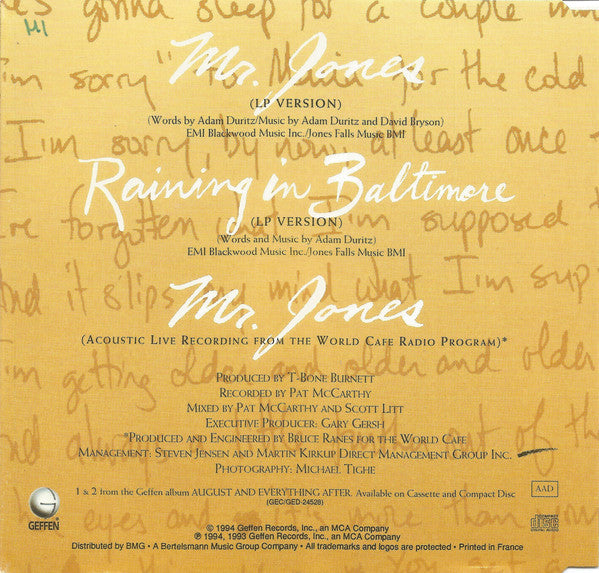 es gonna sleep for a couple min
M1
I'm sorry" to Maria for the cold
Mr. Jones
(LP VERSION)
(Words by Adam Duritz/Music by Adam Duritz and David Bryson)
EMI Blackwood Music Inc./Jones Falls Music BMI
I'm sorry, by now, at least once
Raining in Baltimore
(LP VERSION)
(Words and Music by Adam Duritz)
EMI Blackwood Music Inc./Jones Falls Music BMI
forgotten what I'm supposed t
nd it slips my mind what I'm sup
Mr. Jones
(ACOUSTIC LIVE RECORDING FROM THE WORLD CAFE RADIO PROGRAM)*
I'm getting older and older and older
PRODUCED BY T-BONE BURNETT
RECORDED BY PAT MCCARTHY
MIXED BY PAT MCCARTHY AND SCOTT LITT
EXECUTIVE PRODUCER: GARY GERSH
*PRODUCED AND ENGINEERED BY BRUCE RANES FOR THE WORLD CAFE
nd always out of the
MANAGEMENT: STEVEN JENSEN AND MARTIN KIRKUP DIRECT MANAGEMENT GROUP INC.
PHOTOGRAPHY: MICHAEL TIGHE
1 & 2 from the Geffen album AUGUST AND EVERYTHING AFTER. Available on Cassette and Compact Disc
(GEC/GED-24528)
AAD
GEFFEN
eyes and more than you
COMPACT
disc
DIGITAL AUDIO
© 1994 Geffen Records, Inc., an MCA Company
℗ 1994, 1993 Geffen Records, Inc., an MCA Company
Distributed by BMG • A Bertelsmann Music Group Company • All trademarks and logos are protected • Printed in France